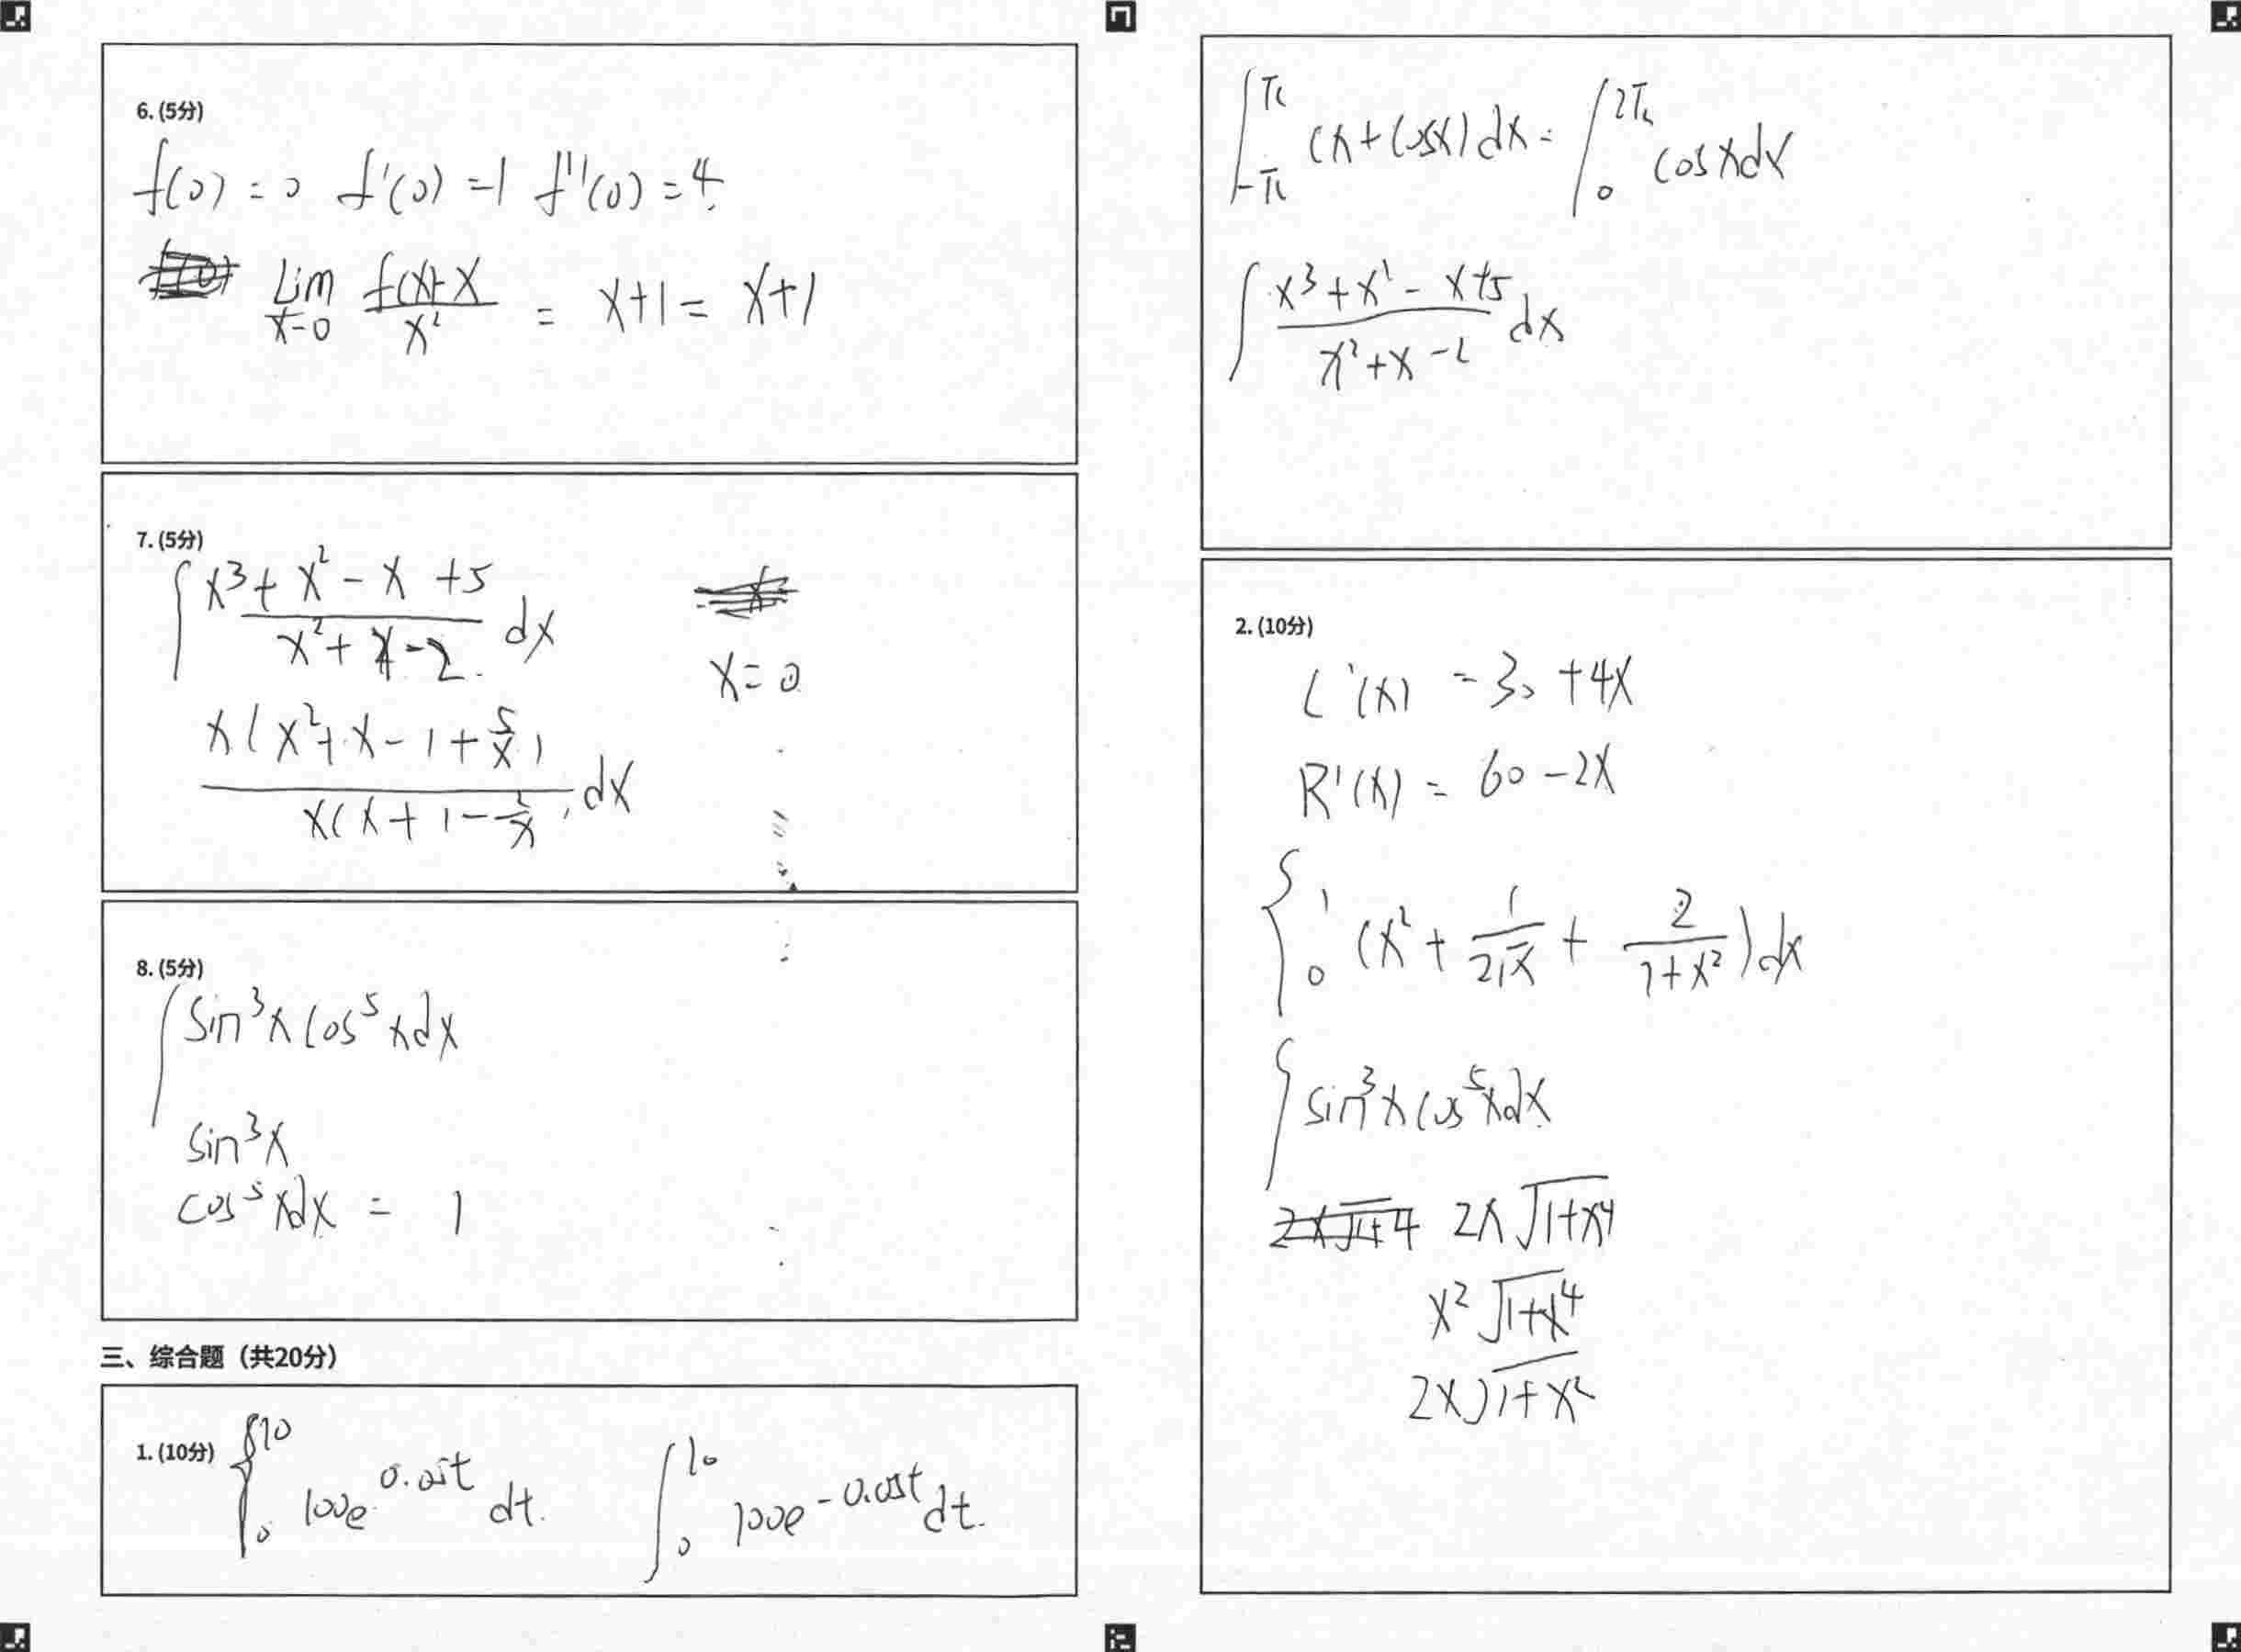 6. (5分)
f(0) = 0 f'(0) = 1 f''(0) = 4.
Lim x→0 (f(x)-x)/x² = x+1 = x+1
7. (5分)
∫ (x³ + x² - x + 5)/(x² + x - 2) dx
x = 0
x(x² + x - 1 + 5/x)/x(x + 1 - 2/x) dx
8. (5分)
∫ sin³x cos⁵xdx
sin³x
cos⁵xdx = 1
三、综合题（共20分）
1. (10分) ∫₀¹⁰ 100e^0.05t dt. ∫₀¹⁰ 100e^-0.05t dt.
∫_-π^π (x + cosx) dx = ∫₀^2π cosxdx
∫ (x³ + x² - x + 5)/(x² + x - 2) dx
2. (10分)
C'(x) = 30 + 4x
R'(x) = 60 - 2x
∫₀¹ (x² + 1/(2√x) + 2/(1+x²)) dx
∫ sin³x cos⁵xdx
2x√(1+x⁴)
x²√(1+x⁴)
2x√(1+x²)